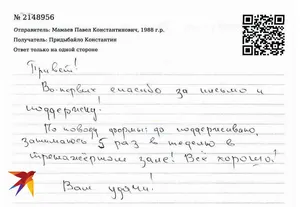 № 2148956
Отправитель: Манаев Павел Константинович, 1988 г.р.
Получатель: Придыбайло Константин
Ответ только на одной стороне
Привет!
Во-первых спасибо за письмо и
поддержку!
По поводу формы: да поддерживаю,
занимаюсь 5 раз в неделю в
тренажёрном зале! Все хорошо!
Вам удачи!